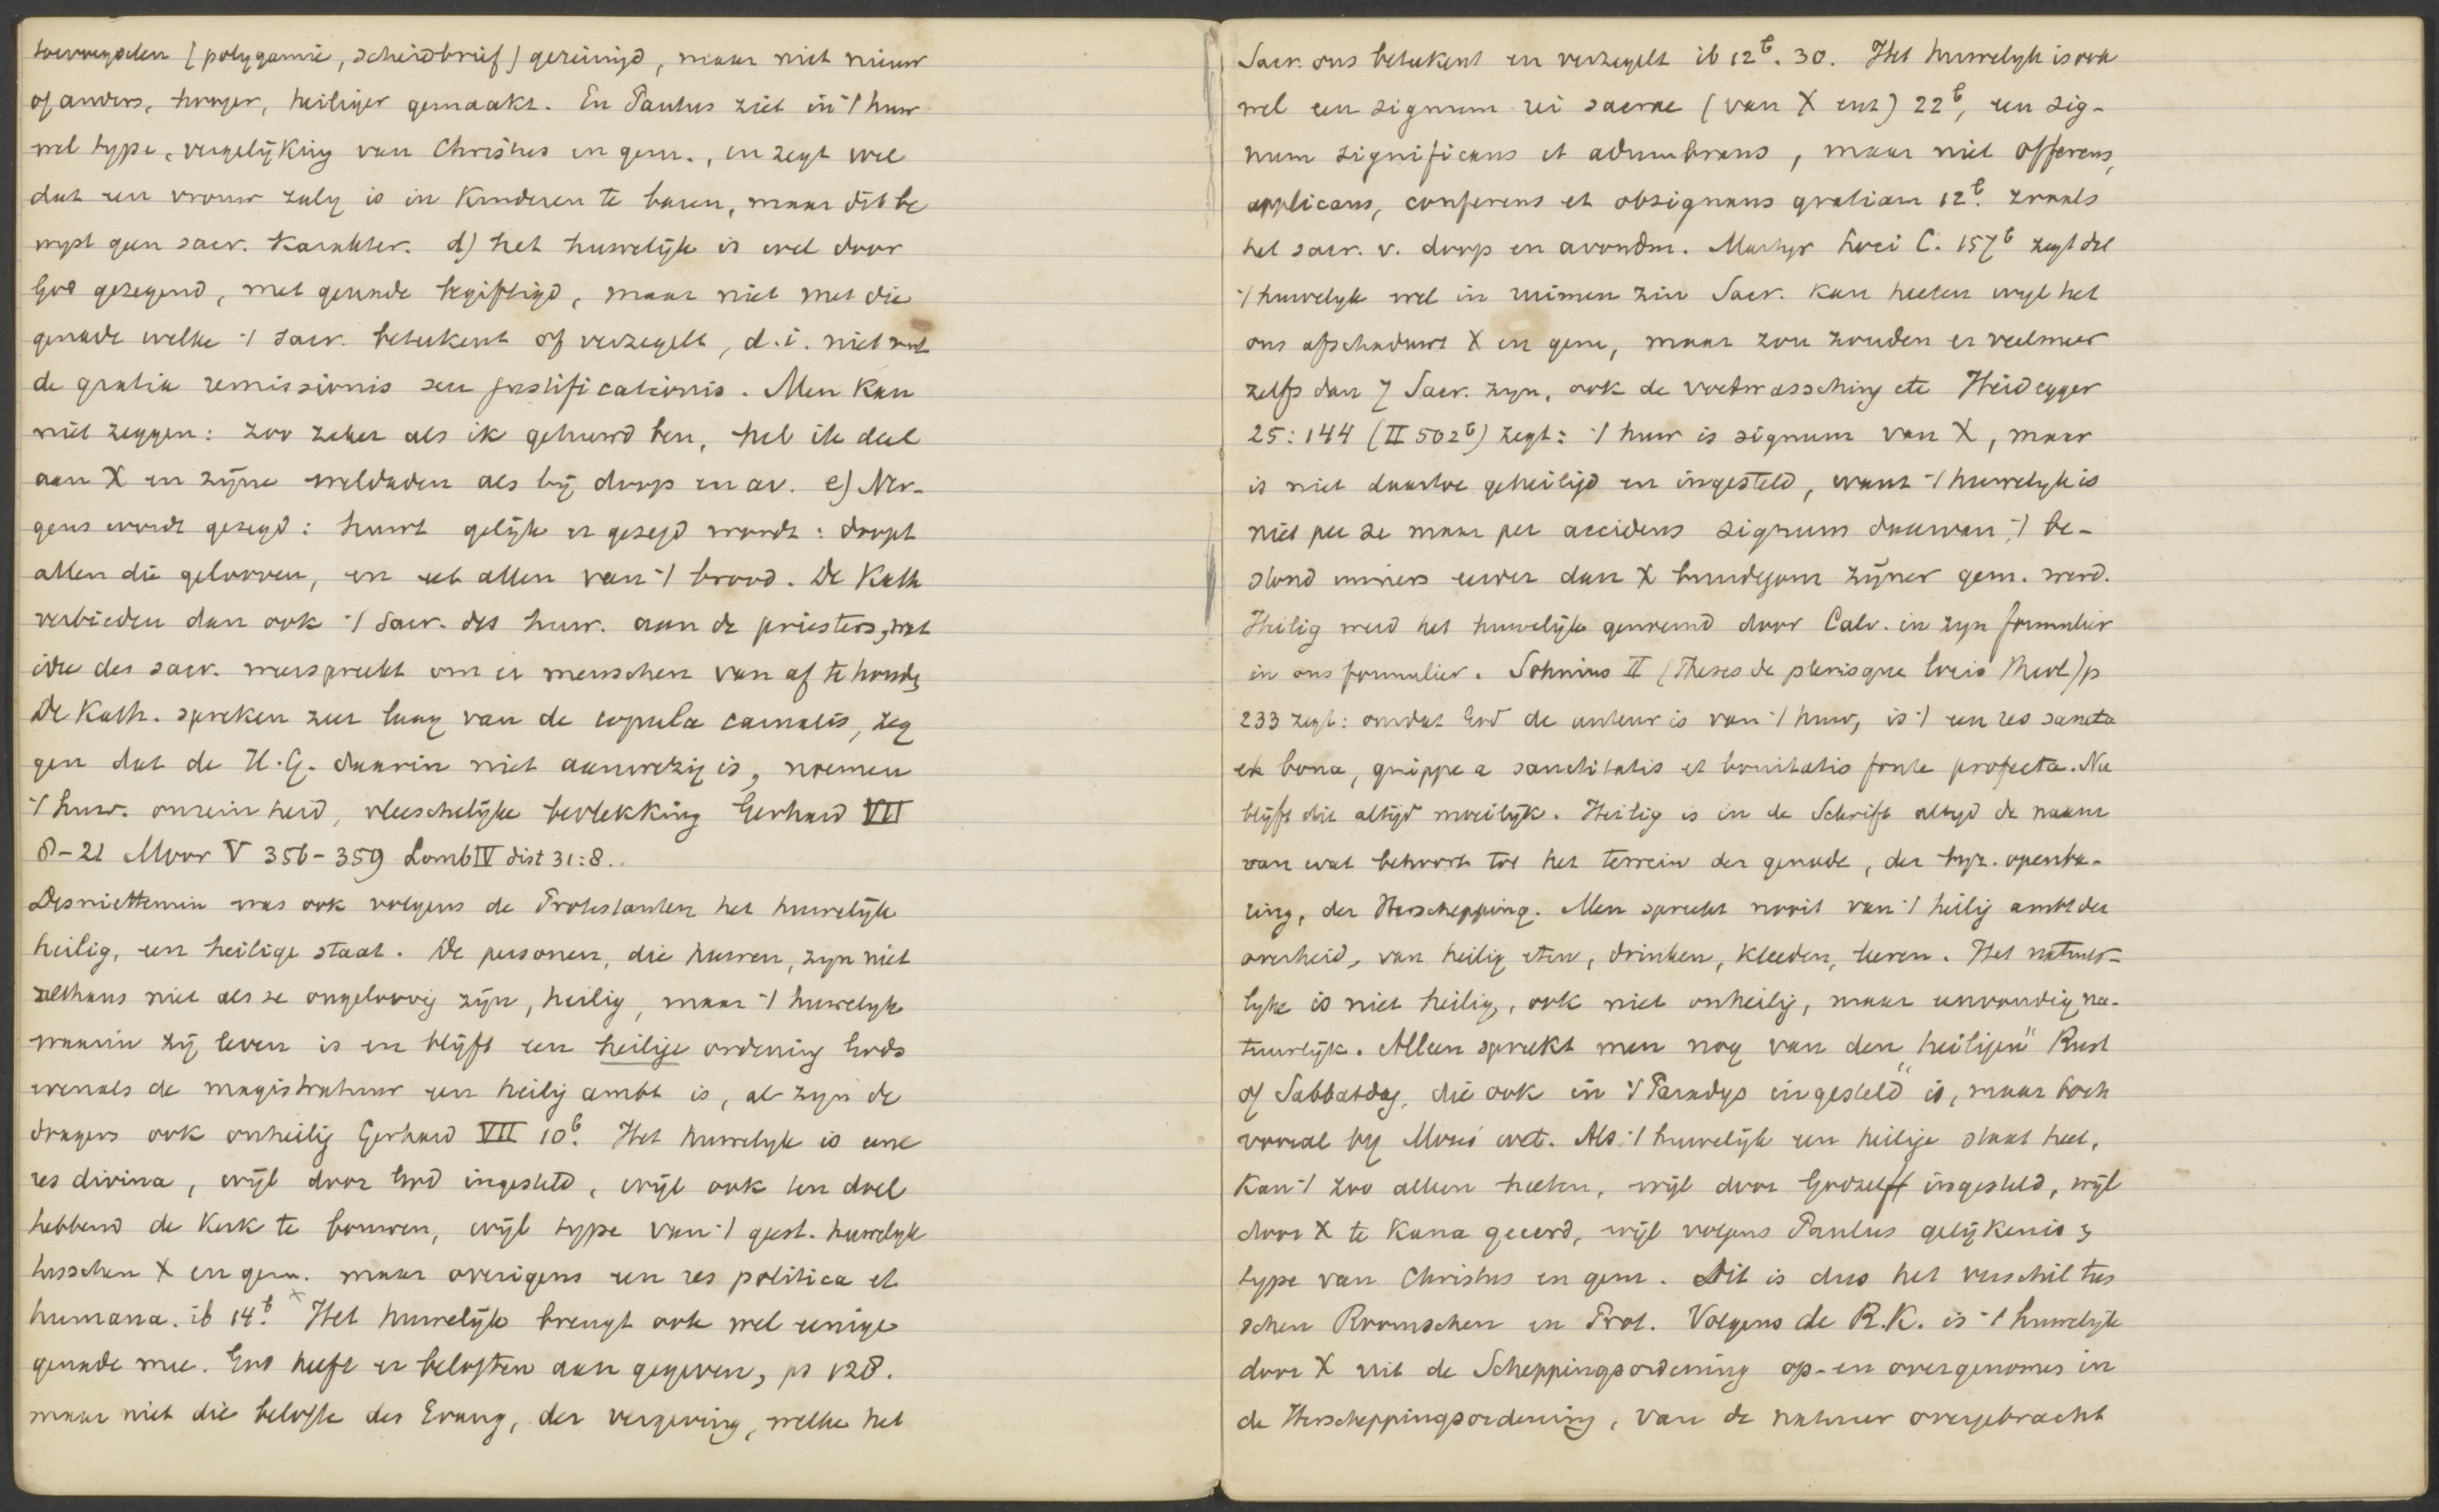 toevoegselen (polygamie, scheidbrief) gereinigd, maar niet nieuw
of anders, hooger, heiliger gemaakt. En Paulus ziet in 't huw
wel type, vergelijking van Christus en gem., en zegt wel
dat een vrouw zalig is in kinderen te baren, maar dit be
wyst geen sacr. karakter. d) het huwelijk is wel door
God gezegend, met genade begiftigd, maar niet met die
genade welke 't sacr. beteekent of verzegelt, d.i. niet met
de gratia remissionis seu justificationis. Men kan
niet zeggen: zoo zeker als ik gehuwd ben, heb ik deel
aan X en zijne weldaden als bij doop en av. e) Ner-
gens wordt gezegd: huwt gelijk er gezegd wordt: doopt
allen die gelooven, en eet allen van 't brood. De Kath
verbieden dan ook 't Sacr. des huw. aan de priesters, wat
idee des sacr. weerspreekt om er menschen van af te houde
De Kath. spreken zeer laag van de copula carnalis, zeg
gen dat de H.G. daarin niet aanwezig is, noemen
't huw. onreinheid, vleeschelijke bevlekking Gerhard VII
8-21 Moor V 356-359 Lomb IV dist 31:8.
Desniettemin was ook volgens de Protestanten het huwelijk
heilig, een heilige staat. De personen, die huwen, zyn niet
althans niet als ze ongeloovig zijn, heilig, maar 't huwelyk
waarin zij leven is en blijft een heilige ordening Gods
evenals de magistratuur een heilig ambt is, al zyn de
dragers ook onheilig Gerhard VII 10b. Het huwelyk is eene
res divina, wijl door God ingesteld, wijl ook ten doel
hebbend de Kerk te bouwen, wijl type van 't geest. huwelyk
tusschen X en gem. maar overigens een res politica et
humana. ib 14b. x Het huwelijk brengt ook wel eenige
genade mee. God heeft er beloften aan gegeven, ps 128.
maar niet die belofte des Evang, der vergeving, welke het
Sacr. ons beteekent en verzegelt ib 12b. 30. Het huwelyk is ook
wel een signum rei sacrae (van X enz) 22b, een sig-
num significans et adumbrans, maar niet offerens,
applicans, conferens et obsignans gratiam 12b. zooals
het sacr. v. doop en avondm. Martyr Loci C. 157b zegt dat
't huwelyk wel in ruimen zin Sacr. kan heeten wyl het
ons afschaduwt X en gem, maar zoo zouden er veelmeer
zelfs dan 7 Sacr. zyn, ook de voetwassching etc Heidegger
25:144 (II 502b) zegt: 't huw is signum van X, maar
is niet daartoe geheiligd en ingesteld, want 't huwelyk is
niet per se maar per accidens signum daarvan, 't be-
stond immers eerder dan X bruidegom zijner gem. werd.
Heilig werd het huwelijk genoemd door Calv. in zyn formulier
in ons formulier. Sohnius II (Theses de plerisque locis theol) p
233 zegt: omdat God de auteur is van 't huw, is 't een res sancta
et bona, quippe a sanctitatis et bonitatis fonte profecta. Nu
blyft die altyd moeilyk. Heilig is in de Schrift altyd de naam
van wat behoort tot het terrein der genade, der byz. openba-
ring, der Herschepping. Men spreekt nooit van 't heilig ambt der
overheid, van heilig eten, drinken, kleeden, leeren. Het natuur-
lyke is niet heilig, ook niet onheilig, maar eenvoudig na-
tuurlyk. Alleen spreekt men nog van den "heiligen" Rust
of Sabbatdag, die ook in 't Paradys ingesteld is, maar toch
vooral by Mozes' wet. Als 't huwelijk een heilige staat heet,
kan 't zoo alleen heeten, wijl door God zelf ingesteld, wijl
door X te Kana geeerd, wijl volgens Paulus gelijkenis &
type van Christus en gem. Dit is dus het verschil tus
schen Roomschen en Prot. Volgens de R.K. is 't huwelijk
door X uit de Scheppingsordening op- en overgenomen in
de Herscheppingsordening, van de natuur overgebracht